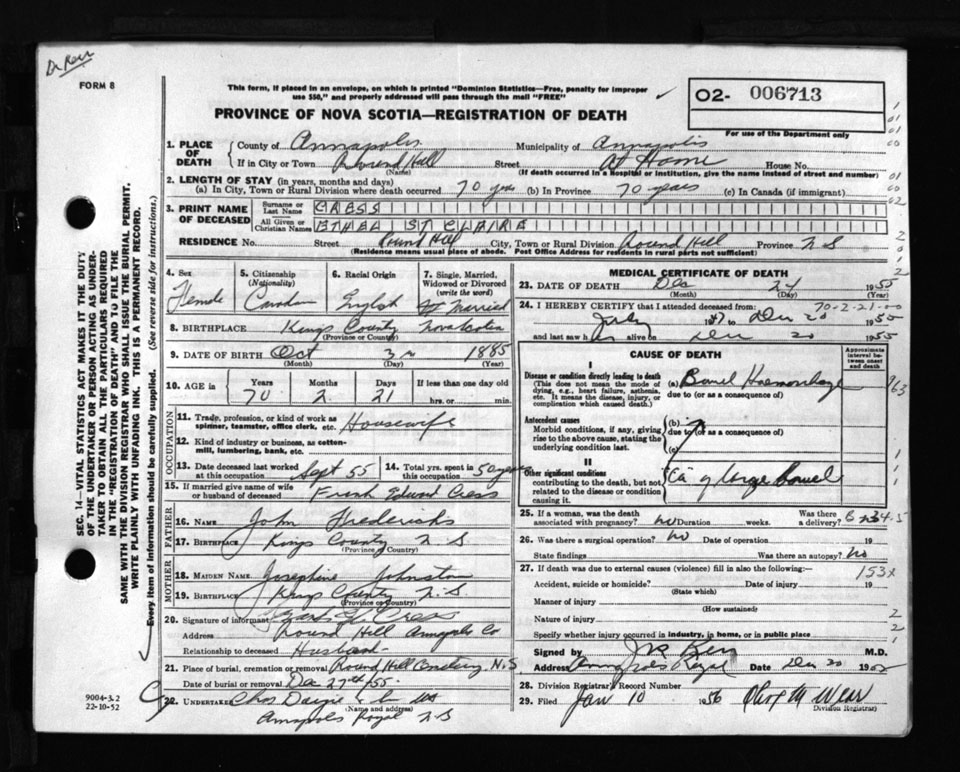 FORM 8
This form, if placed in an envelope, on which is printed "Dominion Statistics—Free, penalty for improper
use $50," and properly addressed will pass through the mail "FREE"
PROVINCE OF NOVA SCOTIA—REGISTRATION OF DEATH
02- 006713
For use of the Department only
1. PLACE OF DEATH County of Annapolis Municipality of Annapolis
If in City or Town Round Hill (Name) Street At Home House No.
(If death occurred in a Hospital or Institution, give the name instead of street and number)
2. LENGTH OF STAY (in years, months and days)
(a) In City, Town or Rural Division where death occurred 70 yrs (b) In Province 70 years (c) In Canada (if immigrant)
3. PRINT NAME OF DECEASED Surname or Last Name CRESS
All Given or Christian Names ETHEL ST CLAIRE
RESIDENCE No. Street Round Hill City, Town or Rural Division Round Hill Province N S
(Residence means usual place of abode. Post Office Address for residents in rural parts not sufficient)
4. Sex Female
5. Citizenship (Nationality) Canadian
6. Racial Origin English
7. Single, Married, Widowed or Divorced (write the word) Married
8. BIRTHPLACE Kings County Nova Scotia
(Province or County)
9. DATE OF BIRTH Oct 3 1885
(Month) (Day) (Year)
10. AGE in Years 70 Months 2 Days 21 If less than one day old hrs. or min.
OCCUPATION
11. Trade, profession, or kind of work as spinner, teamster, office clerk, etc. Housewife
12. Kind of industry or business, as cotten-mill, lumbering, bank, etc.
13. Date deceased last worked at this occupation Sept 55 14. Total yrs. spent in this occupation 50 years
15. If married give name of wife or husband of deceased Frank Edward Cress
FATHER
16. NAME John Fredericks
17. BIRTHPLACE Kings County N. S.
(Province or Country)
MOTHER
18. MAIDEN NAME Josephine Johnston
19. BIRTHPLACE Kings County N. S.
(Province or Country)
20. Signature of informant Cress
Address Round Hill Annapolis Co
Relationship to deceased Husband
21. Place of burial, cremation or removal Round Hill Cemetery N.S
Date of burial or removal Dec 27th/55
22. UNDERTAKER Chas
(Name and address)
Annapolis Royal N S
MEDICAL CERTIFICATE OF DEATH
23. DATE OF DEATH Dec 24 1955
(Month) (Day) (Year)
70-2-21-00
24. I HEREBY CERTIFY that I attended deceased from:
July 1947 Dec 20 1955
and last saw h alive on Dec 20 1955
CAUSE OF DEATH
Approximate interval between onset and death
I
Disease or condition directly leading to death (a) Bowel Haemorrhage
(This does not mean the mode of dying, e.g., heart failure, asthenia, etc. It means the disease, injury, or complication which caused death.)
due to (or as a consequence of)
Antecedent causes (b)
Morbid conditions, if any, giving rise to the above cause, stating the underlying condition last.
due to (or as a consequence of)
(c)
II
Other significant conditions contributing to the death, but not related to the disease or condition causing it. Ca of large bowel
25. If a woman, was the death associated with pregnancy? no Duration weeks. Was there a delivery?
26. Was there a surgical operation? no Date of operation 19
State findings Was there an autopsy? No
27. If death was due to external causes (violence) fill in also the following:— 153X
Accident, suicide or homicide? Date of injury 19
(State which)
Manner of injury
(How sustained)
Nature of injury
Specify whether injury occurred in industry, in home, or in public place
Signed by M.D.
Address Annapolis Royal Date Dec 20 19
28. Division Registrar's Record Number
29. Filed Jan 10 1956
Division Registrar
SEC. 14—VITAL STATISTICS ACT MAKES IT THE DUTY
OF THE UNDERTAKER OR PERSON ACTING AS UNDER-
TAKER TO OBTAIN ALL THE PARTICULARS REQUIRED
IN THE "REGISTRATION OF DEATH" AND TO FILE THE
SAME WITH THE DIVISION REGISTRAR WHO SHALL ISSUE THE BURIAL PERMIT.
WRITE PLAINLY WITH UNFADING INK. THIS IS A PERMANENT RECORD.
Every item of information should be carefully supplied. (See reverse side for instructions.)
9004-3.2
22-10-52